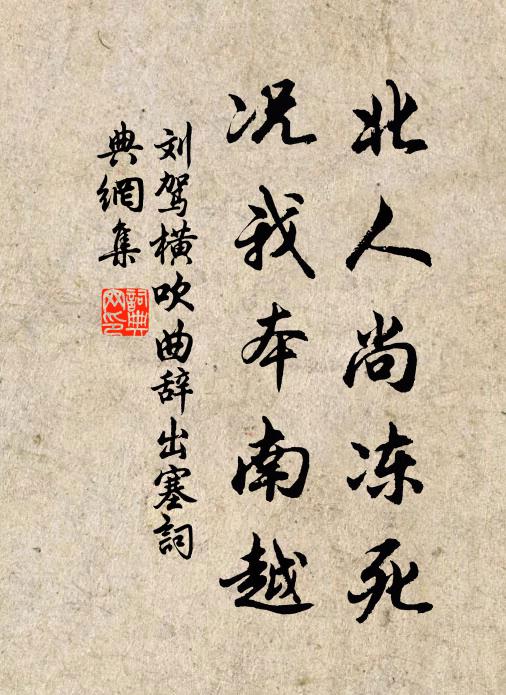 北人尚冻死
况我本南越
刘驾横吹曲辞出塞詞
典網集
詞典
网印